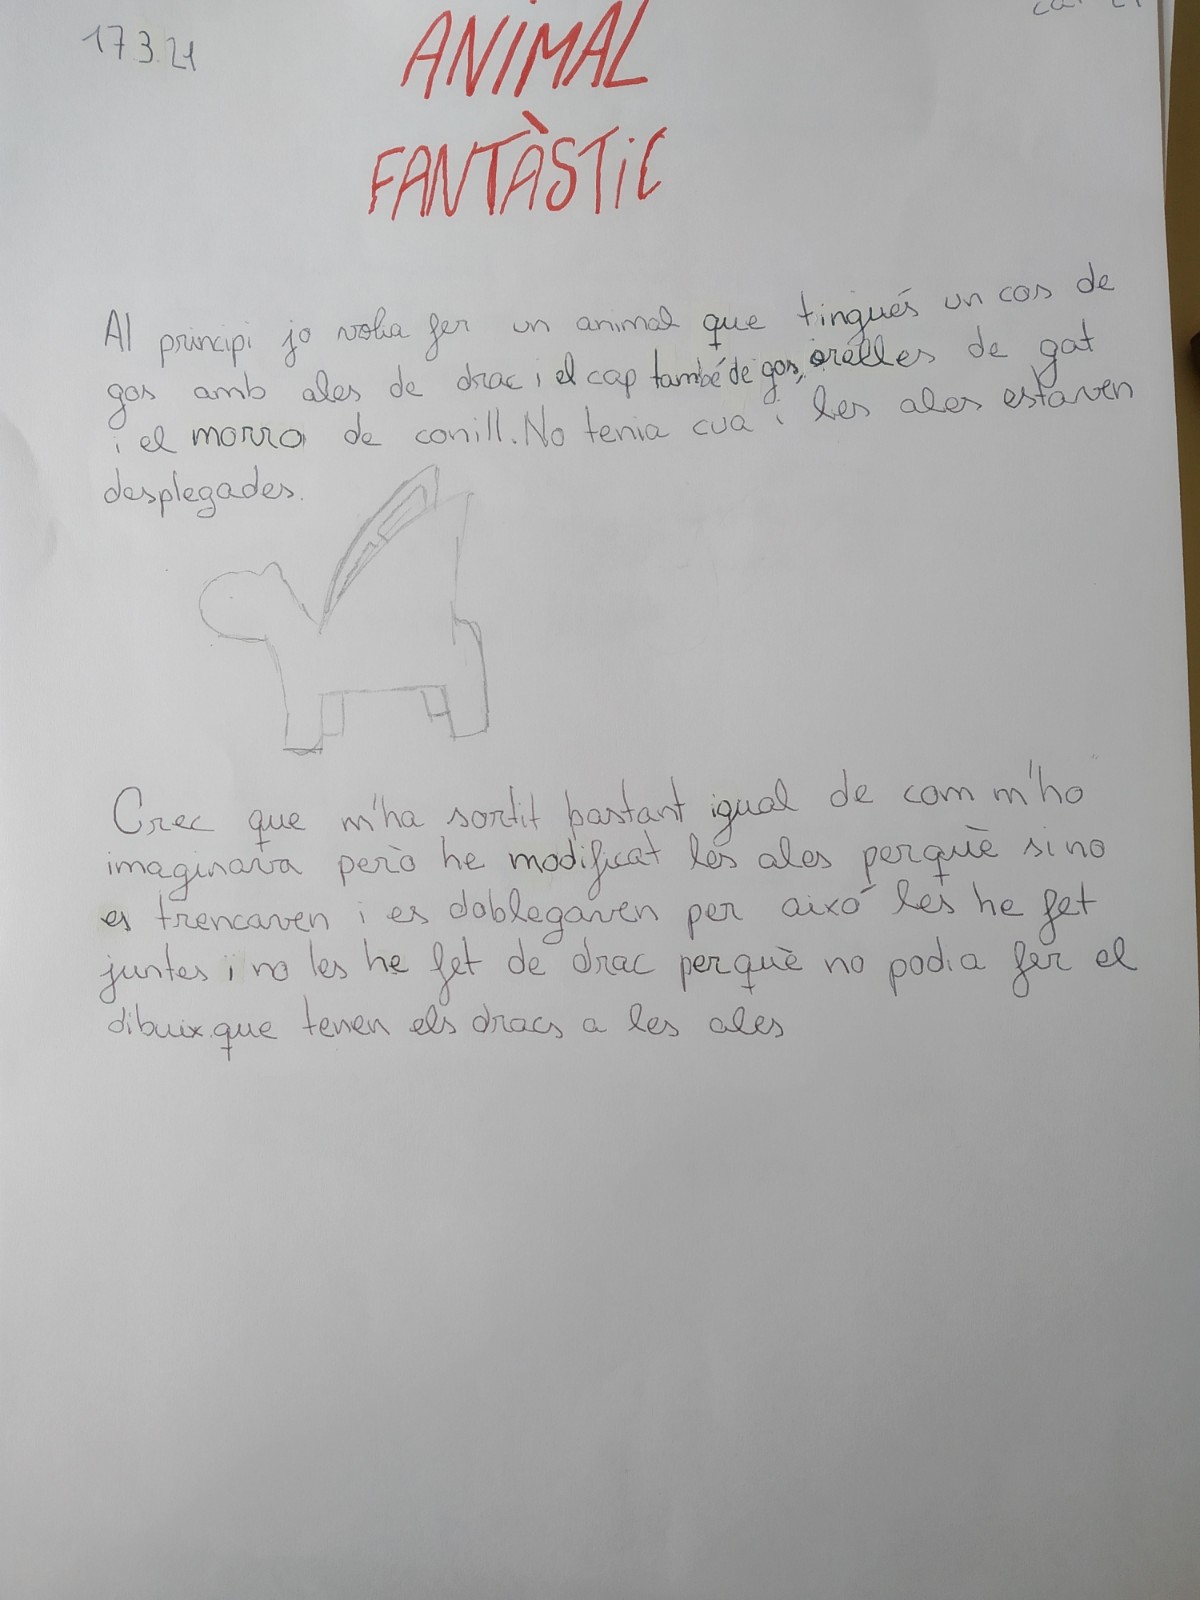 17.3.21
ANIMAL
FANTÀSTIC
Al principi jo volia fer un animal que tingués un cos de
gos amb ales de drac i el cap també de gos, orelles de gat
i el morro de conill. No tenia cua i les ales estaven
desplegades.
Crec que m'ha sortit bastant igual de com m'ho
imaginava però he modificat les ales perquè si no
es trencaven i es doblegaven per aixó les he fet
juntes i no les he fet de drac perquè no podia fer el
dibuix que tenen els dracs a les ales